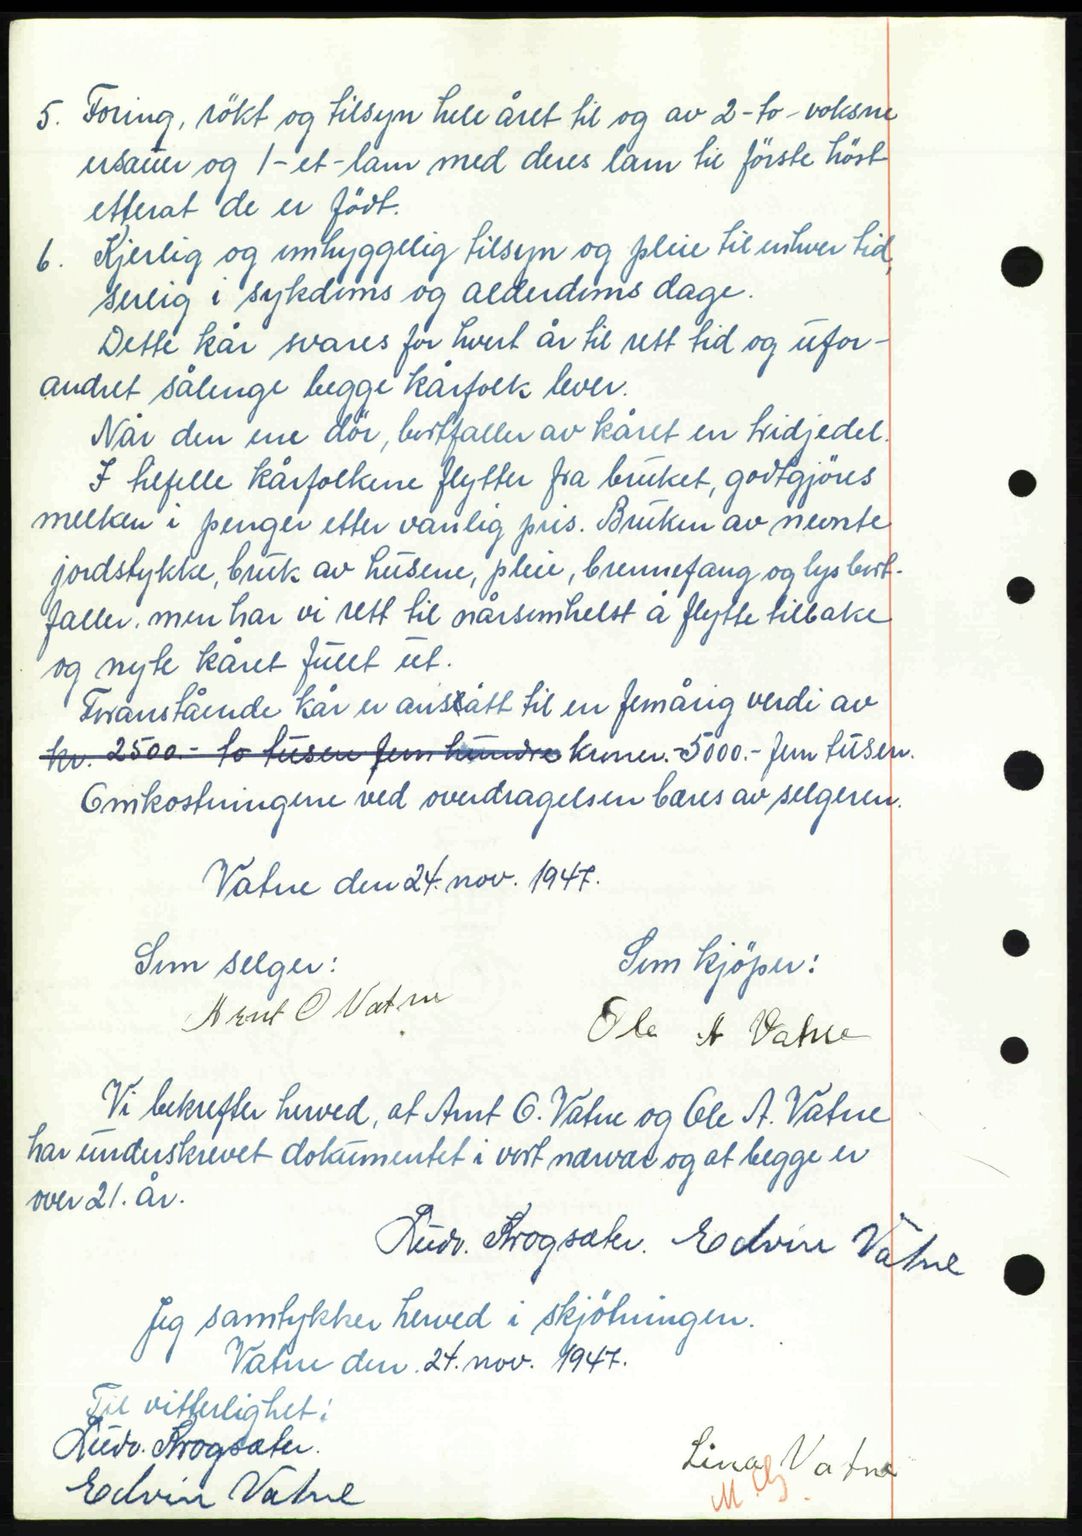 5. Foring, rökt og tilsyn hele året til og av 2-to-voksne
ersauer og 1-et-lam med deres lam til förste höst
etterat de er födt.
6. Kjerlig og omhyggelig tilsyn og pleie til enhver tid,
serlig i sykdoms og alderdoms dage.
Dette kår svares for hvert år til rett tid og ufor-
andret sålenge begge kårfolk lever.
Når den ene dör, bortfaller av kåret en tridjedel.
I tilfelle kårfolkene flytter fra bruket, godtgjöres
melken i penger etter vanlig pris. Bruken av nevnte
jordstykke, bruk av husene, pleie, brennefang og lys bort-
faller. men har vi rett til nårsomhelst å flytte tilbake
og nyte kåret fullt ut.
Foranstående kår er anslått til en femårig verdi av
kr. 2500.- to tusen fem hundre kroner. -5000.- fem tusen.
Omkostningene ved overdragelsen bæres av selgeren.
Vatne den 24. nov. 1947.
Som selger: Som kjöper:
Arnt O Vatne Ole A Vatne
Vi bekrefter herved, at Arnt O. Vatne og Ole A. Vatne
har underskrevet dokumentet i vort nærvær og at begge er
over 21. år.
Ludv. Krogsæter. Edvin Vatne
Jeg samtykker herved i skjötningen.
Vatne den. 24. nov. 1947.
Til vitterlighet:
Ludv. Krogsæter.
Lina Vatne
Edvin Vatne